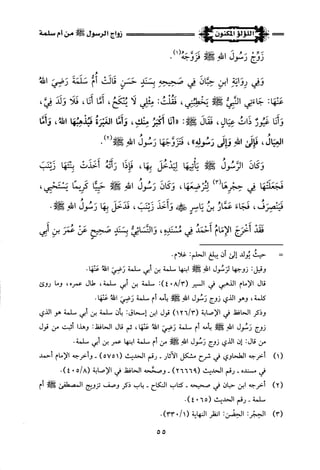 اللؤلؤ المكنون
زواج الرسول ﷺ من أم سلمة
زَوِّجْ رَسُولَ اللهِ ﷺ فَزَوَّجَهُ(١).
وَفِي رِوَايَةِ ابنِ حِبَّانَ فِي صَحِيحِهِ بِسَنَدٍ حَسَنٍ قَالَتْ أُمُّ سَلَمَةَ رَضِيَ اللهُ
عَنْهَا: جَاءَنِي النَّبِيُّ ﷺ يَخْطُبُنِي، فَقُلْتُ: مِثْلِي لَا يُنْكَحُ، أَمَّا أَنَا، فَلَا وَلَدَ فِيَّ،
وَأَنَا غَيُورٌ ذَاتُ عِيَالٍ، فَقَالَ ﷺ: «أَنَا أَكْبَرُ مِنْكِ، وَأَمَّا الغَيْرَةُ فَيُذْهِبُهَا اللهُ، وَأَمَّا
العِيَالُ، فَإِلَى اللهِ وَإِلَى رَسُولِهِ»، فَتَزَوَّجَهَا رَسُولُ اللهِ ﷺ(٢).
وَكَانَ الرَّسُولُ ﷺ يَأْتِيهَا لِيَدْخُلَ بِهَا، فَإِذَا رَأَتْهُ أَخَذَتْ بِنْتَهَا زَيْنَبَ
فَجَعَلَتْهَا فِي حِجْرِهَا(٣) لِتُرْضِعَهَا، وَكَانَ رَسُولُ اللهِ ﷺ حَيِيًّا كَرِيمًا يَسْتَحْيِي،
فَيَنْصَرِفُ، فَجَاءَ عَمَّارُ بنُ يَاسِرٍ وَأَخَذَ زَيْنَبَ، فَدَخَلَ بِهَا رَسُولُ اللهِ ﷺ.
فَقَدْ أَخْرَجَ الإِمَامُ أَحْمَدُ فِي مُسْنَدِهِ، وَالنَّسَائِيُّ بِسَنَدٍ صَحِيحٍ عَنْ عُمَرَ بنِ أَبِي
= حيثُ يُولد إلى أن يبلغ الحلم: غلام.
وقيل: زوجها لرَسُول اللهِ ﷺ ابنها سلمة بن أبي سلمة رَضِيَ اللهُ عَنْهَا.
قال الإمام الذهبي في السير (٤٠٨/٣): سلمة بن أبي سلمة، طال عمره، وما روى
كلمة، وهو الذي زوج رَسُول اللهِ ﷺ بأمه أم سلمة رَضِيَ اللهُ عَنْهَا.
وذكر الحافظ في الإصابة (١٢٦/٣) قول ابن إسحاق: بأن سلمة بن أبي سلمة هو الذي
زوج رسول الله ﷺ بأمه أم سلمة رَضِيَ اللهُ عَنْهَا، ثم قال الحافظ: وهذا أثبت من قول
من قال: إن الذي زوج رَسُول اللهِ ﷺ من أم سلمة ابنها عمر بن أبي سلمة.
(١) أخرجه الطحاوي في شرح مشكل الآثار - رقم الحديث (٥٧٥١) - وأخرجه الإمام أحمد
في مسنده - رقم الحديث (٢٦٦٦٩) - وصححه الحافظ في الإصابة (٤٠٥/٨).
(٢) أخرجه ابن حبان في صحيحه - كتاب النكاح - باب ذكر وصف تزويج المصطفى ﷺ أم
سلمة - رقم الحديث (٤٠٦٥).
(٣) الحِجْر: الحِضْن: انظر النهاية (٣٣٠/١).
٥٥